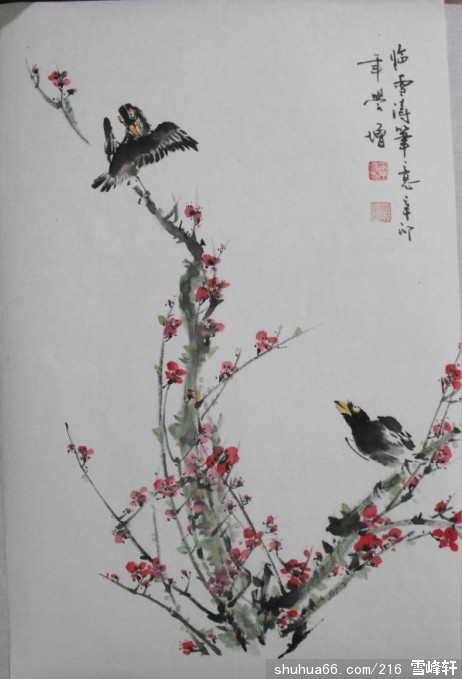 临雪涛笔意辛卯
年学增
shuhua66.com/216 雪峰轩